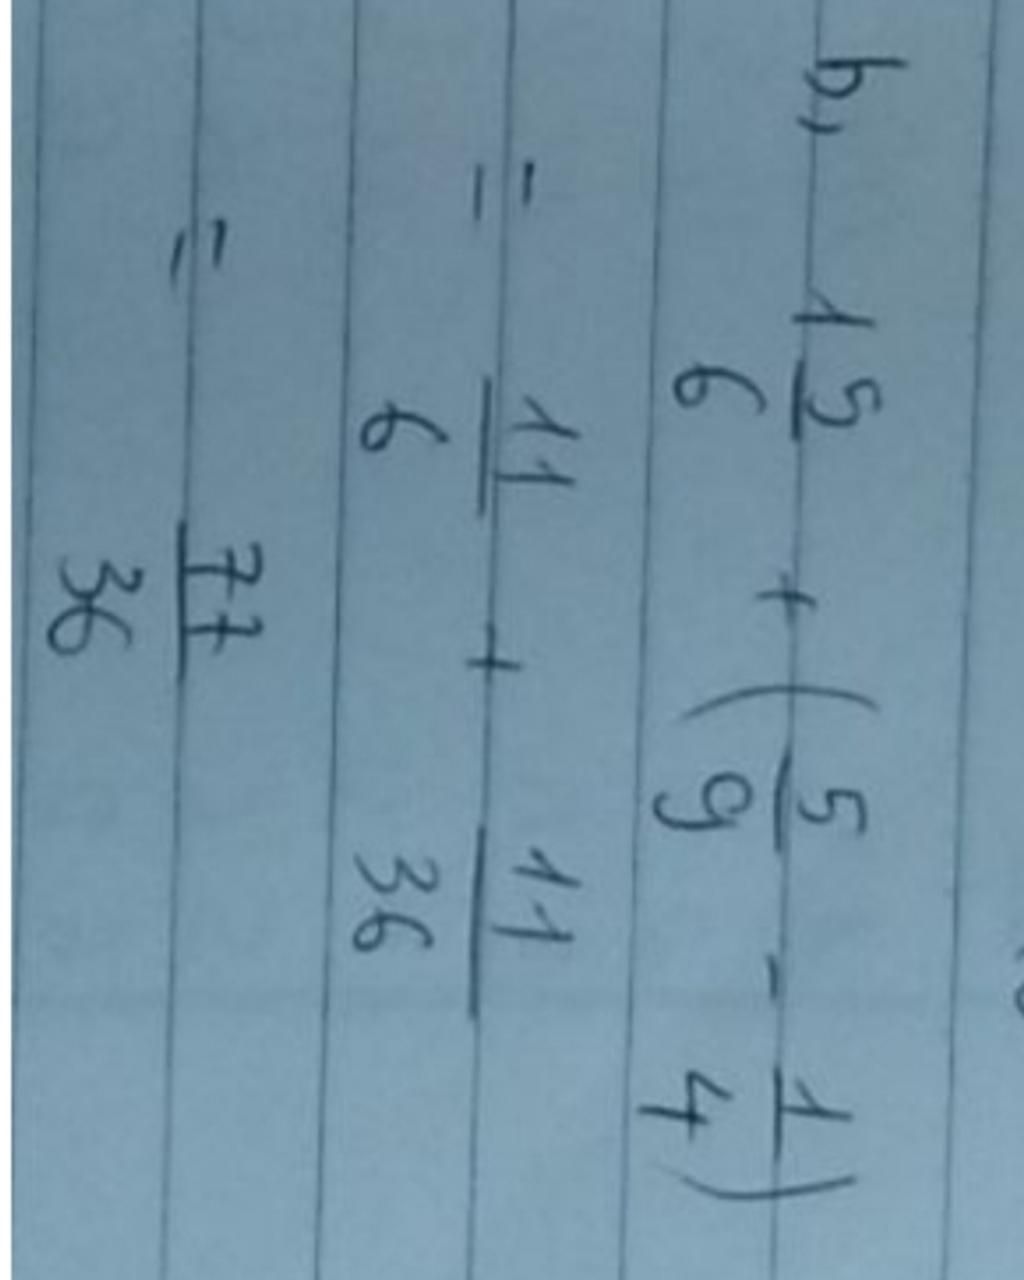 b, 1 5/6 + (5/9 - 1/4)
= 11/6 + 11/36
= 77/36